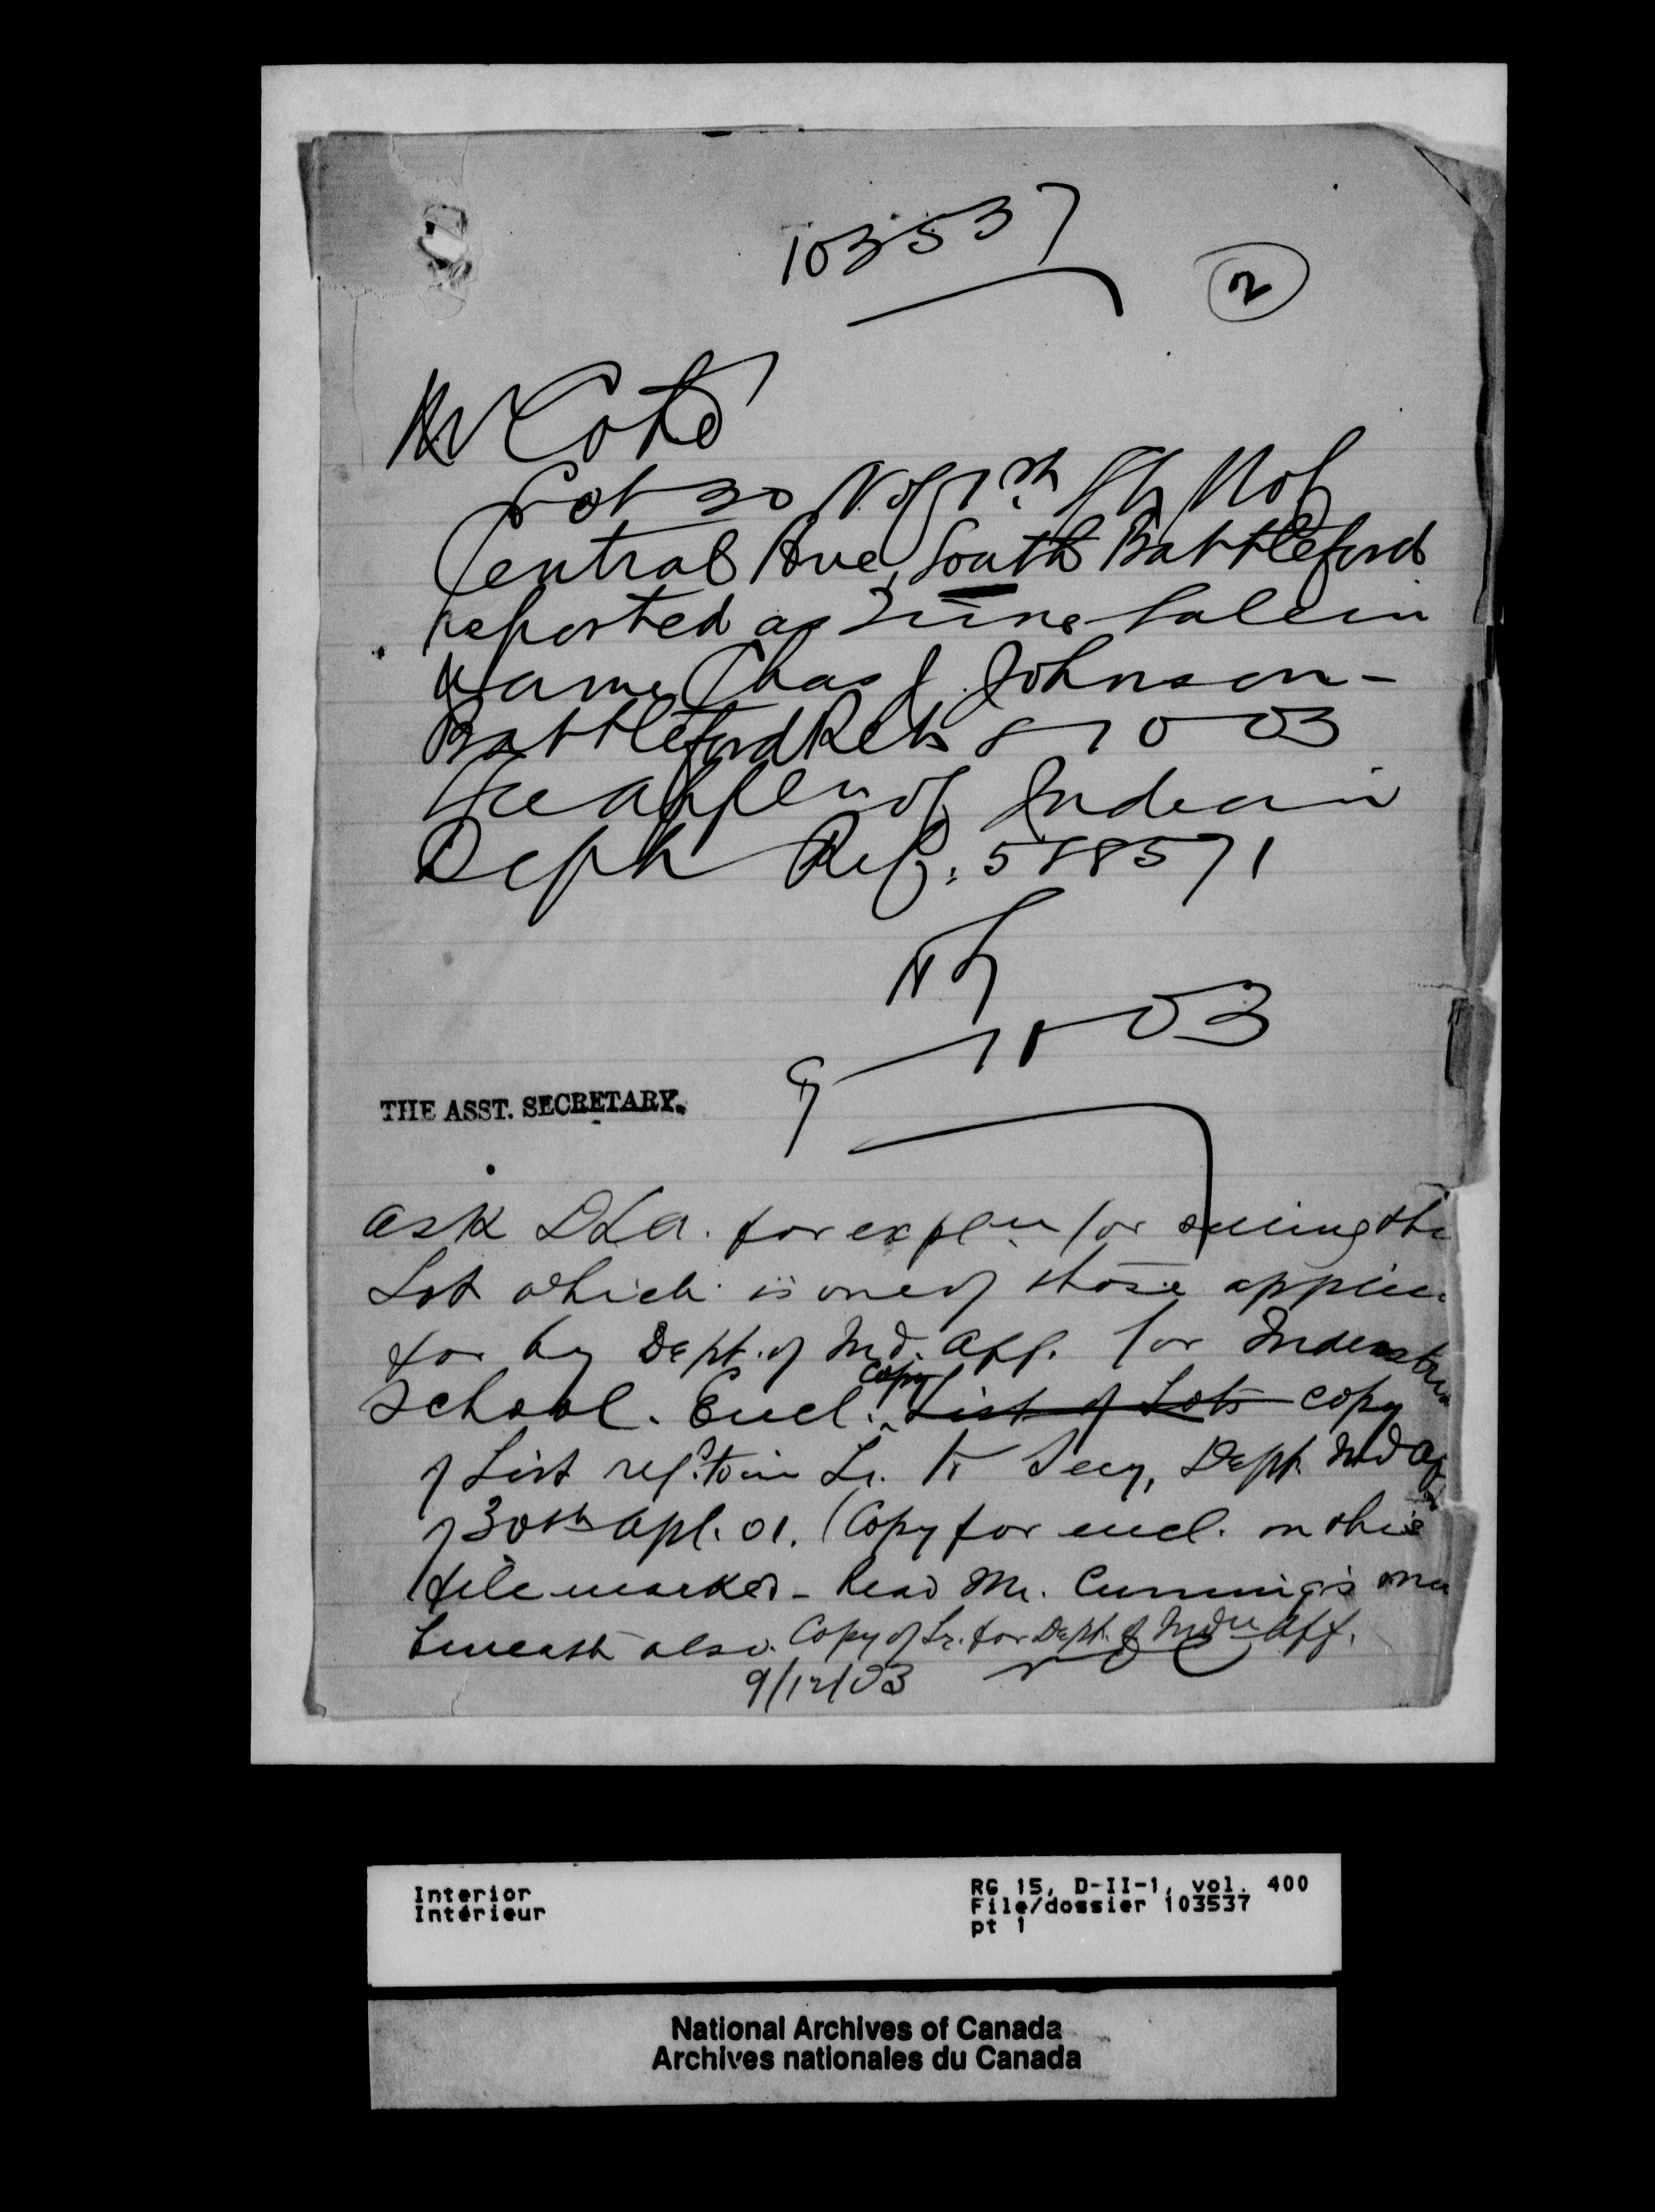 103537
2
Mr Coté
Lot 30 N of 7th St W of
Central Ave, South Battleford
reported as June Sale in
name Chas J. Johnson -
Battleford Rets 8-10-03
See applen of Indian
Dept Ref. 588571
03
THE ASST. SECRETARY.
Ask D.L.A. for explen for selling the
Lot which is one of those applied
for by Dept. of Ind. Aff. for Industri
School. Encl. copy List of Lots copy
of List refd. to in Lr. to Secy, Dept. Ind Af
of 30th Apl. 01. (Copy for encl. on this
file marked - Read Mr. Cumming's
beneath also. Copy of Lr. for Dept. of Indn Aff.
9/12/03
Interior
Intérieur
RG 15, D-II-1, vol. 400
File/dossier 103537
pt 1
National Archives of Canada
Archives nationales du Canada